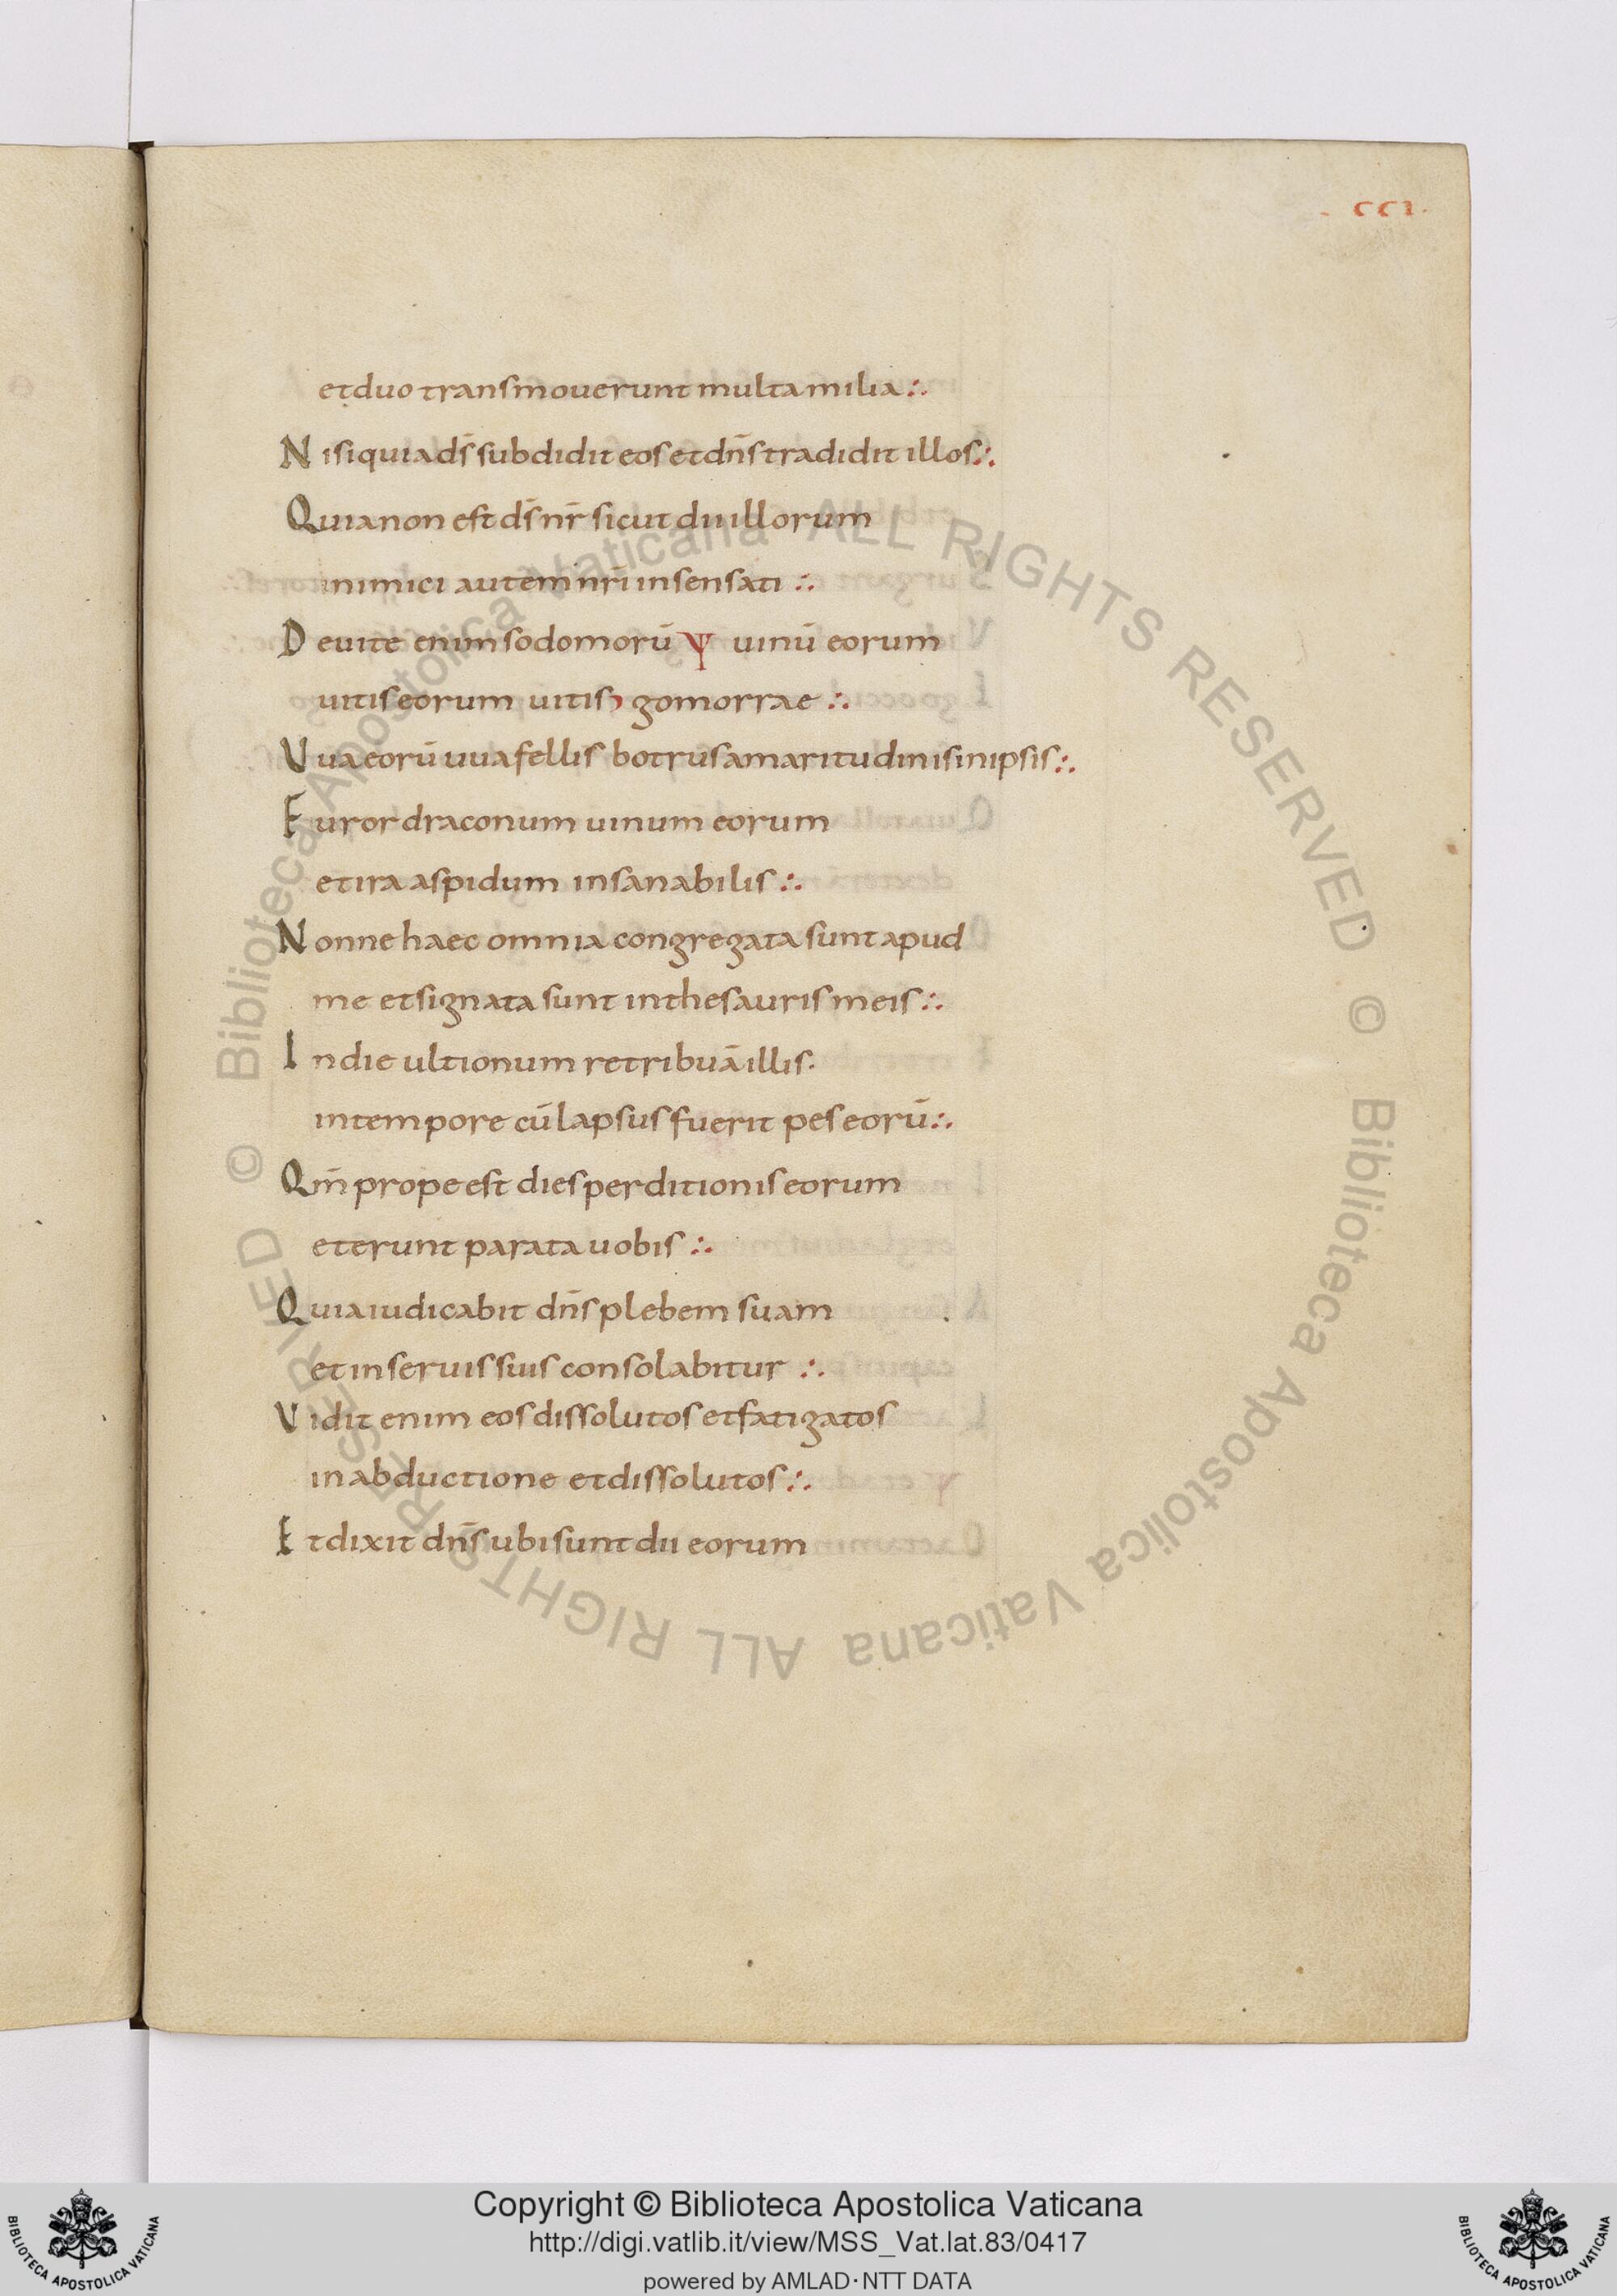 . ccı.
et duo transmouerunt multa milia ∴
Nisi quia ds̄ subdidit eos et dn̄s tradidit illos ∴
Quia non est ds̄ nr̄ sicut dii illorum
inimici autem nr̄i insensati ∴
De uite enim sodomorū Ψ uinū eorum
uitis eorum uitis gomorrae ∴
Uua eorū uua fellis botrus amaritudinis in ipsis ∴
Furor draconum uinum eorum
et ira aspidum insanabilis ∴
Nonne haec omnia congregata sunt apud
me et signata sunt in thesauris meis ∴
In die ultionum retribuā illis.
in tempore cū lapsus fuerit pes eorū ∴
Qm̄ prope est dies perditionis eorum
et erunt parata uobis ∴
Quia iudicabit dn̄s plebem suam
et in seruis suis consolabitur ∴
Vidit enim eos dissolutos et fatigatos
in abductione et dissolutos ∴
Et dixit dn̄s ubi sunt dii eorum
© Biblioteca Apostolica Vaticana ALL RIGHTS RESERVED © Biblioteca Apostolica Vaticana ALL RIGHTS RESERVED
Copyright © Biblioteca Apostolica Vaticana
http://digi.vatlib.it/view/MSS_Vat.lat.83/0417
powered by AMLAD·NTT DATA
BIBLIOTECA APOSTOLICA VATICANA
BIBLIOTECA APOSTOLICA VATICANA